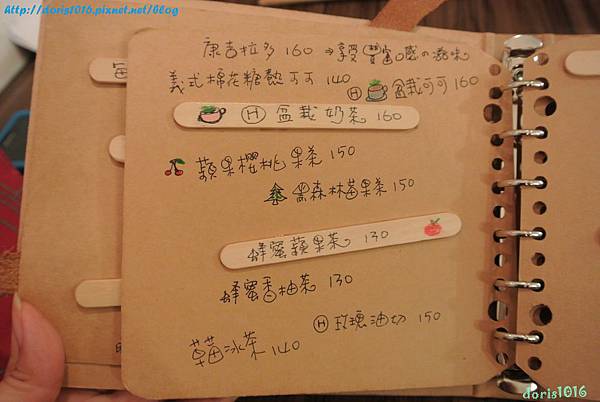 http://doris1016.pixnet.net/blog
康吉拉多 160 → 享受豐富口感の滋味
義式棉花糖熱可可 140
Ⓗ 盆栽可可 160
Ⓗ 盆栽奶茶 160
蘋果櫻桃果茶 150
黑森林莓果茶 150
蜂蜜蘋果茶 130
蜂蜜香柚茶 130
Ⓗ 玫瑰油切 150
草莓冰茶 140
doris1016